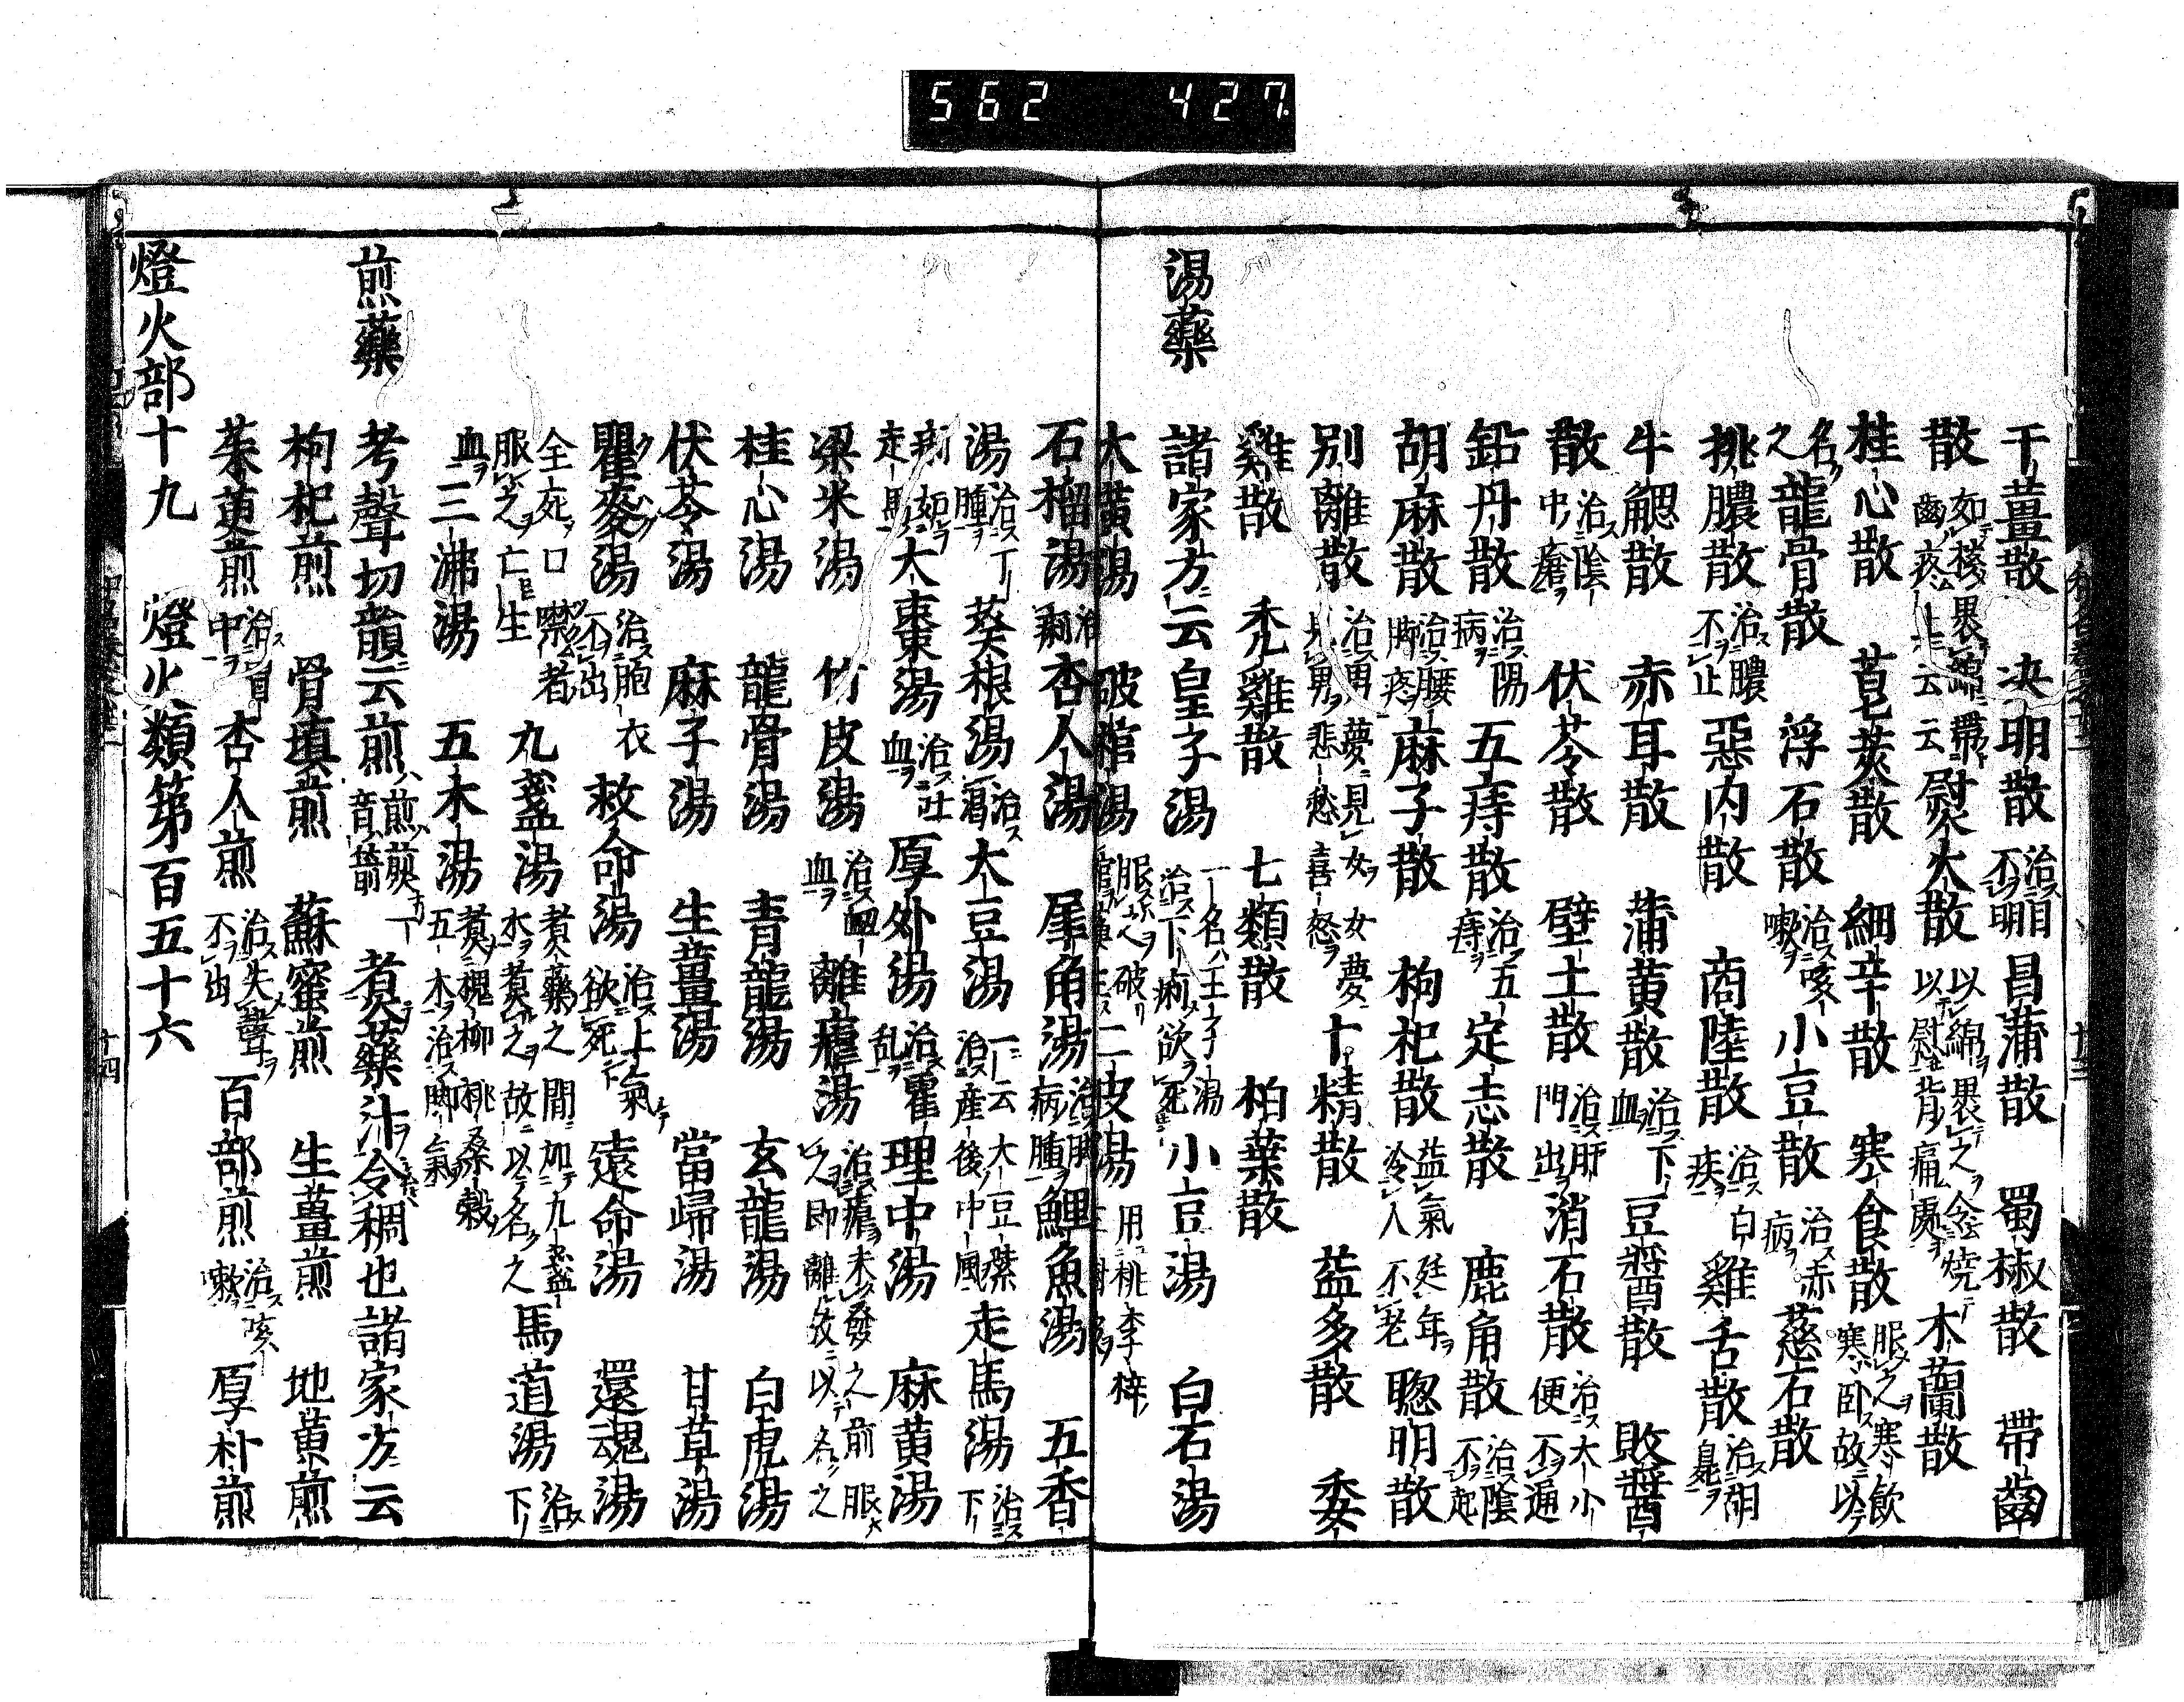 562 427.
干薑散 决明散 治目不明 昌蒲散 蜀椒散 帶齒
散 如棧裹綿帶齒疼上云云 熨大散 以綿裹之燒以慰背痛處 木蘭散
桂心散 皂莢散 細辛散 寒食散 服之寒飲寒卧故以
名之 龍骨散 浮石散 治咳嗽 小豆散 治赤病 慈石散
桃膿散 治膿不止 惡肉散 商陸散 治白疾 雞舌散 治胡臭
牛䚡散 赤耳散 蒲黄散 治下血 豆醬散 敗醬
散 治陰中瘡 伏苓散 壁土散 治肝門出 消石散 治大小便不通
鉛丹散 治陽病 五痔散 治五痔 定志散 鹿角散 治陰不起
胡麻散 治腰脚疼 麻子散 枸杞散 益氣延年冷人不老 聰明散
别離散 治男夢見女女夢見男悲愁喜怒 十精散 益多散 委
雞散 禿雞散 七類散 柏葉散
湯藥 諸家方云皇子湯 一名王子湯治下痢欲死 小豆湯 白石湯
大黄湯 破棺湯 服人破棺 二皮湯 用桃李梓
石榴湯 治痢 杏人湯 犀角湯 治脚病腫 鯉魚湯 五香
湯 治丁腫 葵根湯 治㵼 大豆湯 一云大豆㯶治産後中風 走馬湯 治下
痢如走馬 大棗湯 治吐血 厚外湯 治霍乱 理中湯 麻黄湯
梁米湯 竹皮湯 治衂血 離瘧湯 治瘧未發之前服以即離故以名之
桂心湯 龍骨湯 青龍湯 玄龍湯 白虎湯
伏苓湯 麻子湯 生薑湯 當歸湯 甘草湯
瞿麥湯 治胞衣不出 救命湯 治上氣欲死 遠命湯 還魂湯
全死口噤者服之亡生 九盞湯 煮藥之間加九盞水煮之故以名之 馬道湯 治下
血 三沸湯 五木湯 煮槐柳桃桑榖五木治脚氣
煎藥 考聲切韻云煎 煎𤋎音箭 一 煮藥汁令稠也諸家方云
枸杞煎 骨填煎 蘇蜜煎 生薑煎 地黄煎
茱萸煎 治胃中 杏人煎 治失聲不出 百部煎 治咳嗽 厚朴煎
燈火部十九 燈火類第百五十六